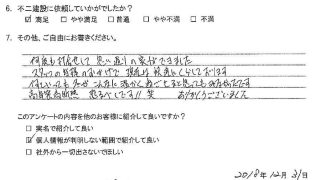 6. 不二建設に依頼していかがでしたか?
☑ 満足 □ やや満足 □ 普通 □ やや不満 □ 不満
7. その他、ご自由にお書きください。
何度も打合せして 思い通りの家ができました
スタッフの皆様のおかげで 現在は 快適にくらしております
高気密高断熱 恐るべしです!! 笑 ありがとうございました
このアンケートの内容を他のお客様に紹介して良いですか?
□ 実名で紹介して良い
☑ 個人情報が判明しない範囲で紹介して良い
□ 社外から一切出さないでほしい
2018年12月31日